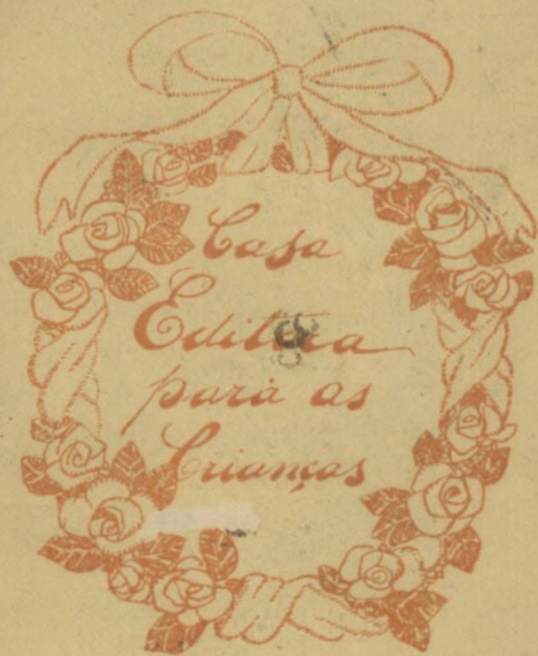 Casa
Editora
para as
Crianças